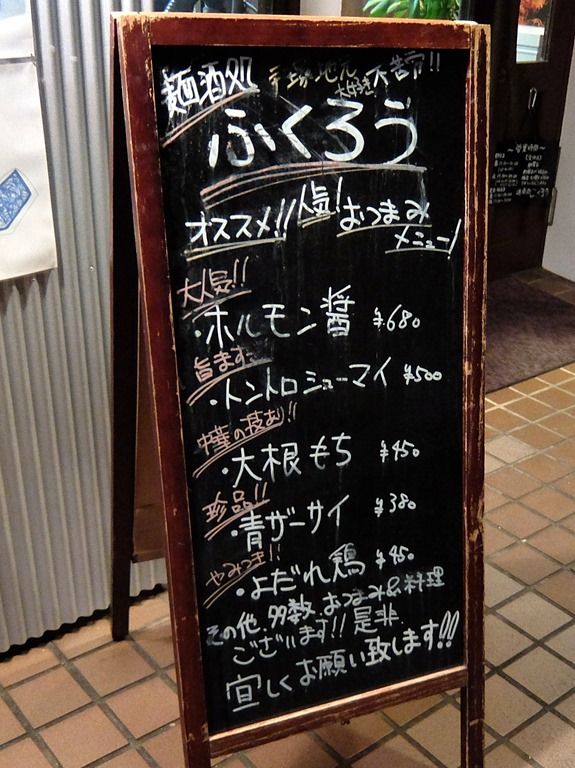 麺酒処 手塚地元
大好き 大苦市!!
ふくろう
オススメ!! 人気! おつまみ
メニュー!
大人気!!
・ホルモン醤 ¥680
旨ます
・トントロシューマイ ¥500
!!
・大根もち ¥450
珍品!!
・青ザーサイ ¥380
やみつき!!
・よだれ鶏 ¥450
その他、多数、おつまみ&料理
ございます!! 是非
宜しくお願い致します!!
～営業時間～